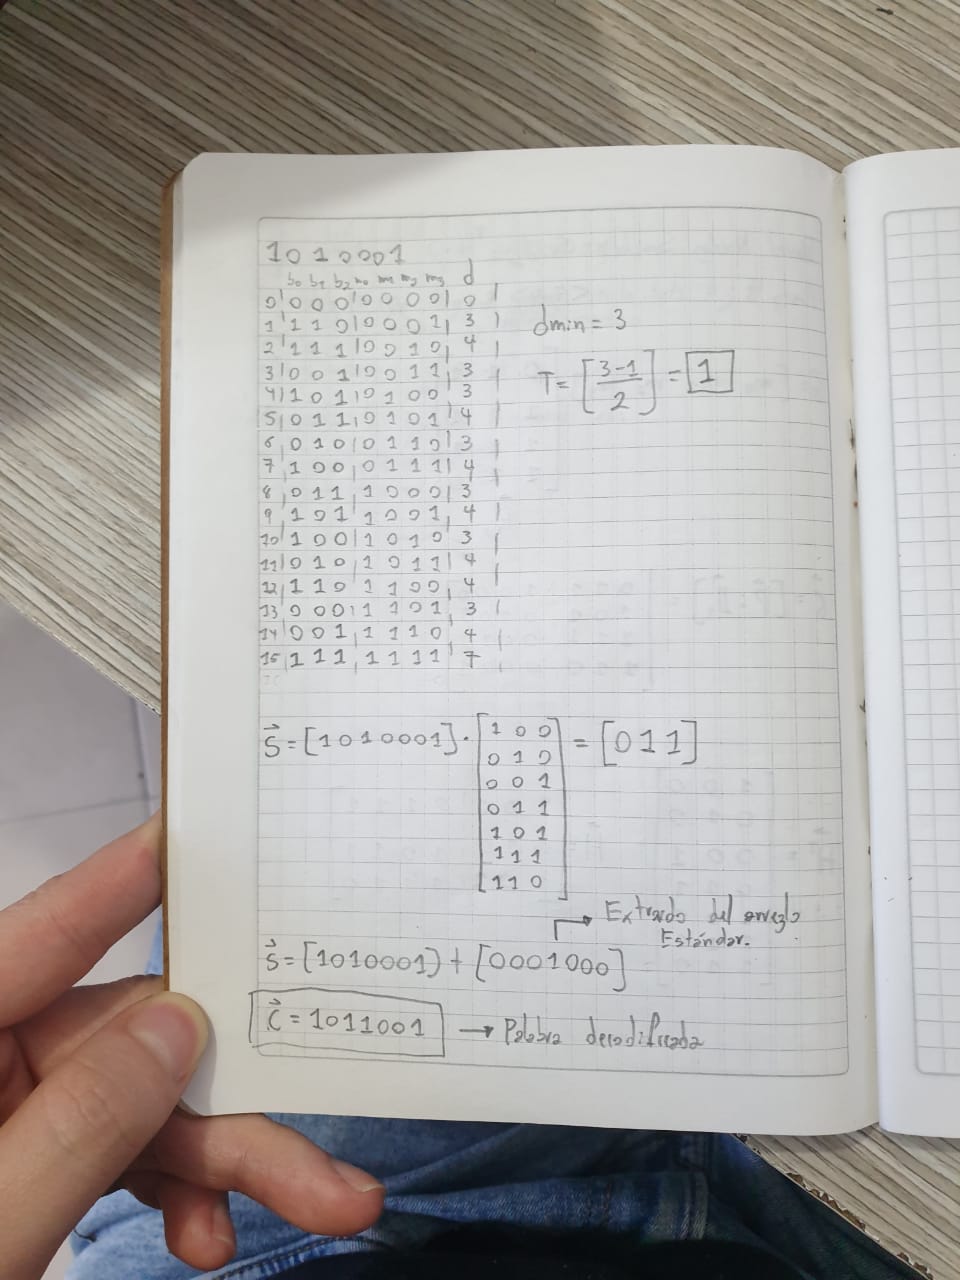 1010001
b0 b1 b2 m0 m1 m2 m3 d
0 | 0 0 0 | 0 0 0 0 | 0 |
1 | 1 1 0 | 0 0 0 1 | 3 |
2 | 1 1 1 | 0 0 1 0 | 4 |
3 | 0 0 1 | 0 0 1 1 | 3 |
4 | 1 0 1 | 0 1 0 0 | 3 |
5 | 0 1 1 | 0 1 0 1 | 4 |
6 | 0 1 0 | 0 1 1 0 | 3 |
7 | 1 0 0 | 0 1 1 1 | 4 |
8 | 0 1 1 | 1 0 0 0 | 3
9 | 1 0 1 | 1 0 0 1 | 4 |
10 | 1 0 0 | 1 0 1 0 | 3 |
11 | 0 1 0 | 1 0 1 1 | 4
12 | 1 1 0 | 1 1 0 0 | 4 |
13 | 0 0 0 | 1 1 0 1 | 3 |
14 | 0 0 1 | 1 1 1 0 | 4 |
15 | 1 1 1 | 1 1 1 1 | 7
dmin = 3
T = [3-1/2] = 1
S⃗ = [1010001] · [1 0 0 = [011]
0 1 0
0 0 1
0 1 1
1 0 1
1 1 1
1 1 0]
→ Extraido del arreglo
Estándar.
S⃗ = [1010001) + [0001000]
C⃗ = 1011001 → Palabra decodificada